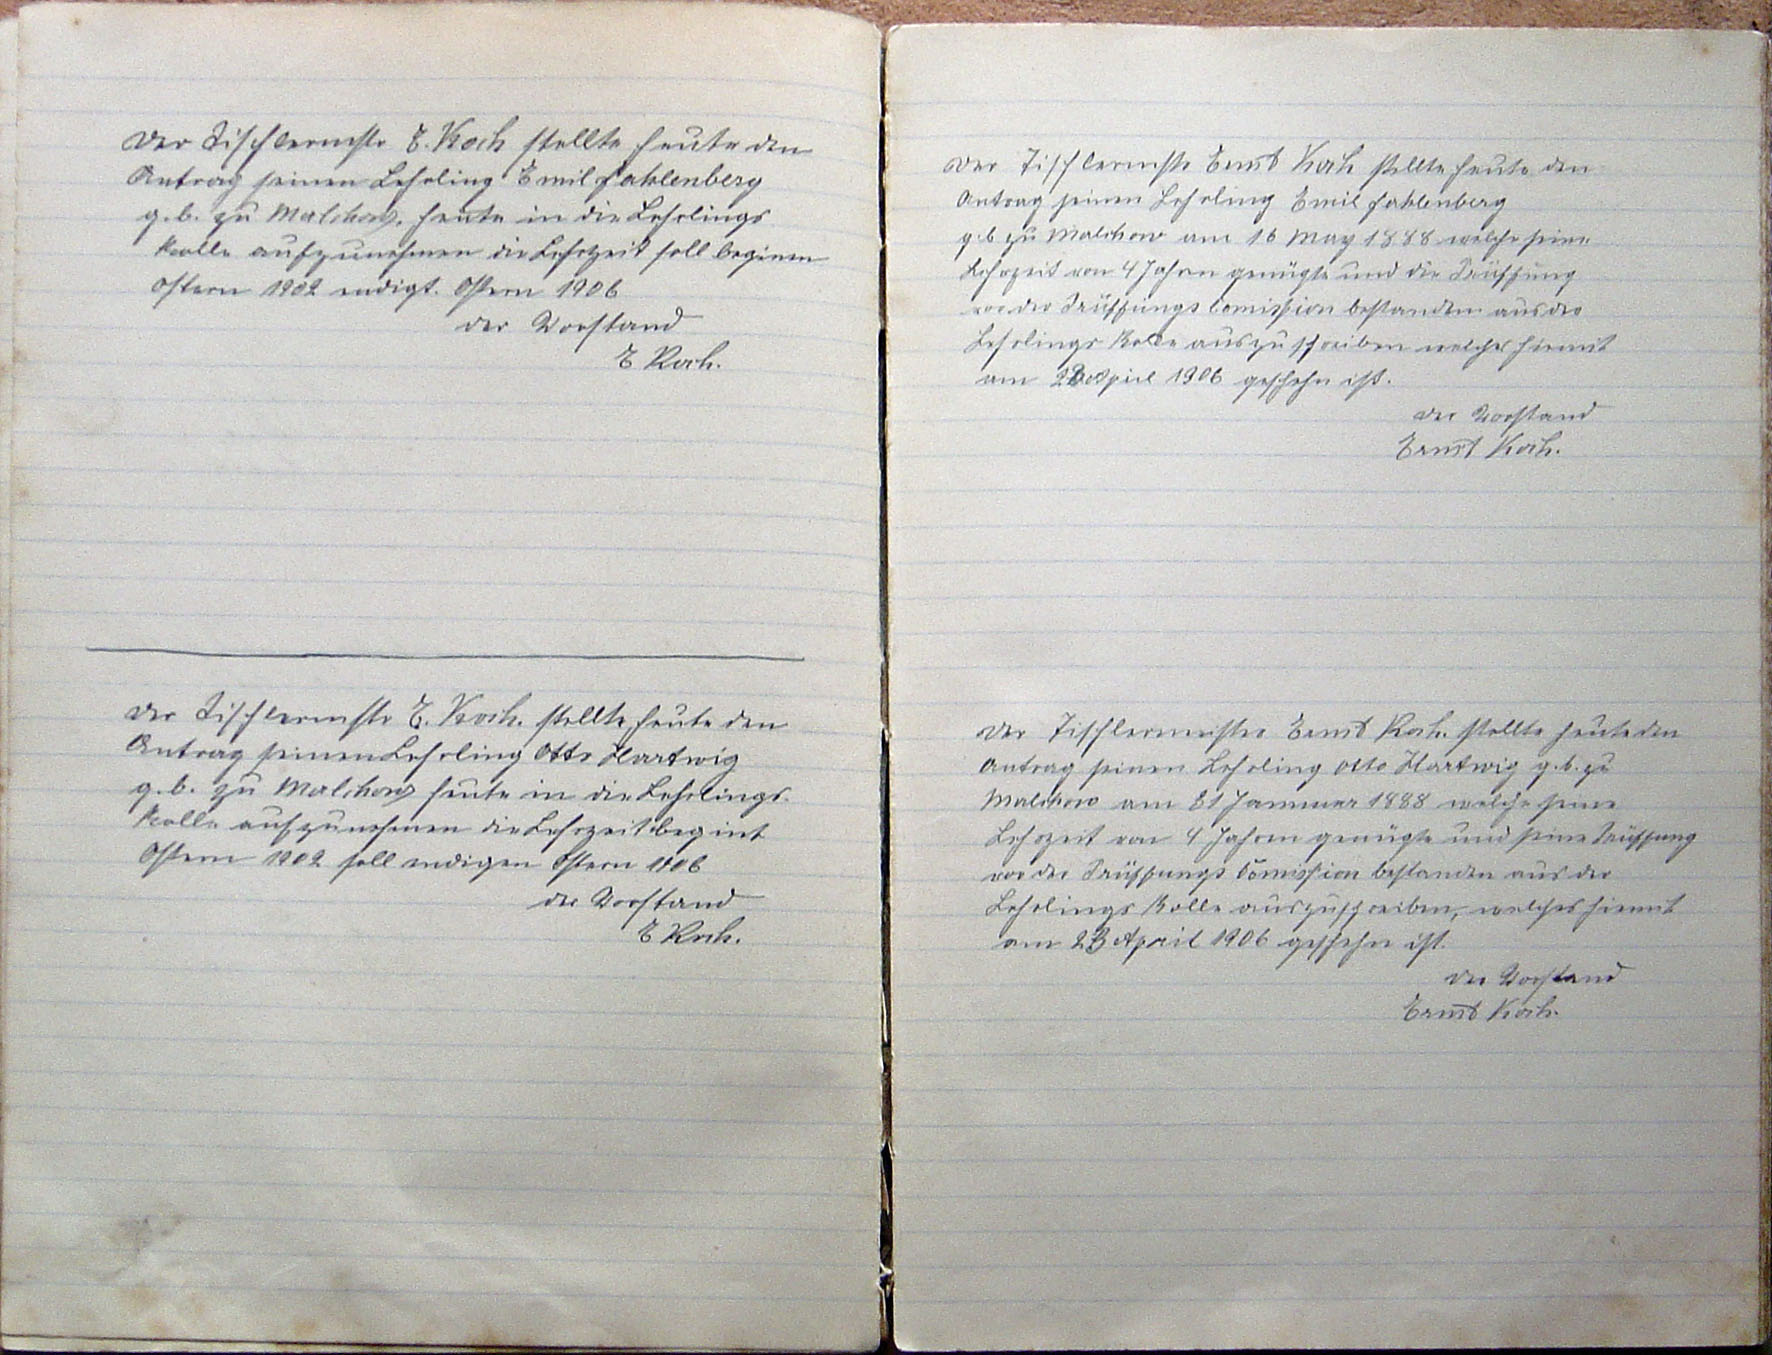 Der Tischlermstr E. Koch stellte heute den
Antrag seinen Lehrling Emil Fahlenberg
g.b. zu Malchow, heute in die Lehrlings
Rolle aufzunehmen die Lehrzeit soll beginen
Ostern 1902 endigt. Ostern 1906
der Vorstand
E Koch.
Der Tischlermstr E. Koch. stellte heute den
Antrag seinen Lehrling Otto Hartwig
g.b. zu Malchow heute in die Lehrlings.
Rolle aufzunehmen die Lehrzeit begint
Ostern 1902 soll endigen Ostern 1906
der Vorstand
E Koch.
Der Tischlermstr Ernst Koch stellte heute den
Antrag seinen Lehrling Emil Fahlenberg
g.b zu Malchow am 16 May 1888 welche seine
Lehrzeit von 4 Jahren genügte und die Prüffung
vor der Prüffungs Comission bestanden aus der
Lehrlings Rolle auszuschreiben welches hiermit
am April 1906 geschehn ist.
der Vorstand
Ernst Koch.
Der Tischlermeister Ernst Koch. stellte heute den
Antrag seinen Lehrling Otto Hartwig g.b. zu
Malchow am 31 Januar 1888 welche seine
Lehrzeit von 4 Jahren genügte und seine Prüffung
vor der Prüffungs Comission bestanden aus der
Lehrlings Rolle auszuschreiben, welches hiermit
am 23 April 1906 geschehn ist.
der Vorstand
Ernst Koch.